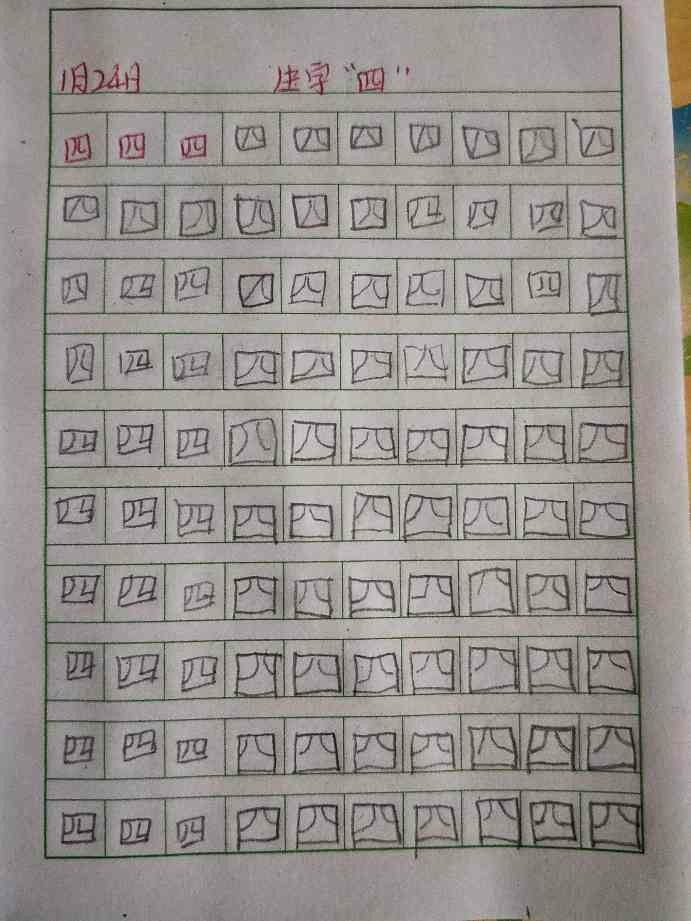 1月24日 生字“四”
四四四四四四四四四四
四四四四四四四四四四
四四四四四四四四四四
四四四四四四四四四四
四四四四四四四四四四
四四四四四四四四四四
四四四四四四四四四四
四四四四四四四四四四
四四四四四四四四四四
四四四四四四四四四四